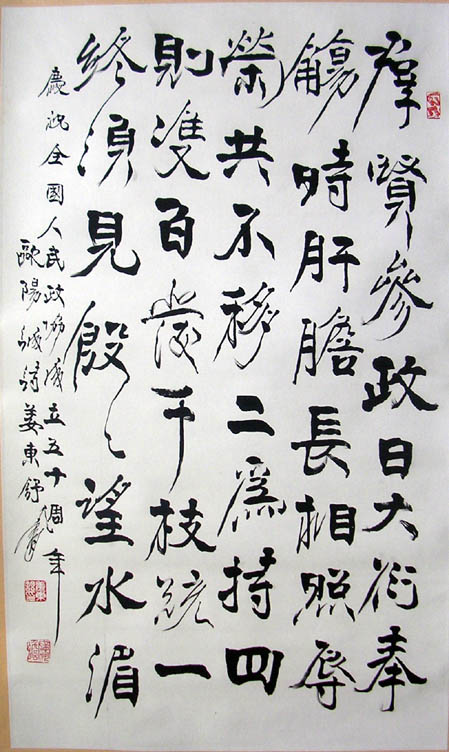 群賢參政日大衍奉
觴時肝膽長相照辱
榮共不移二為持四
則雙百千枝統一
終須見殷々望水湄
慶祝全國人民政協成立五十週年
歐陽詩姜東舒書